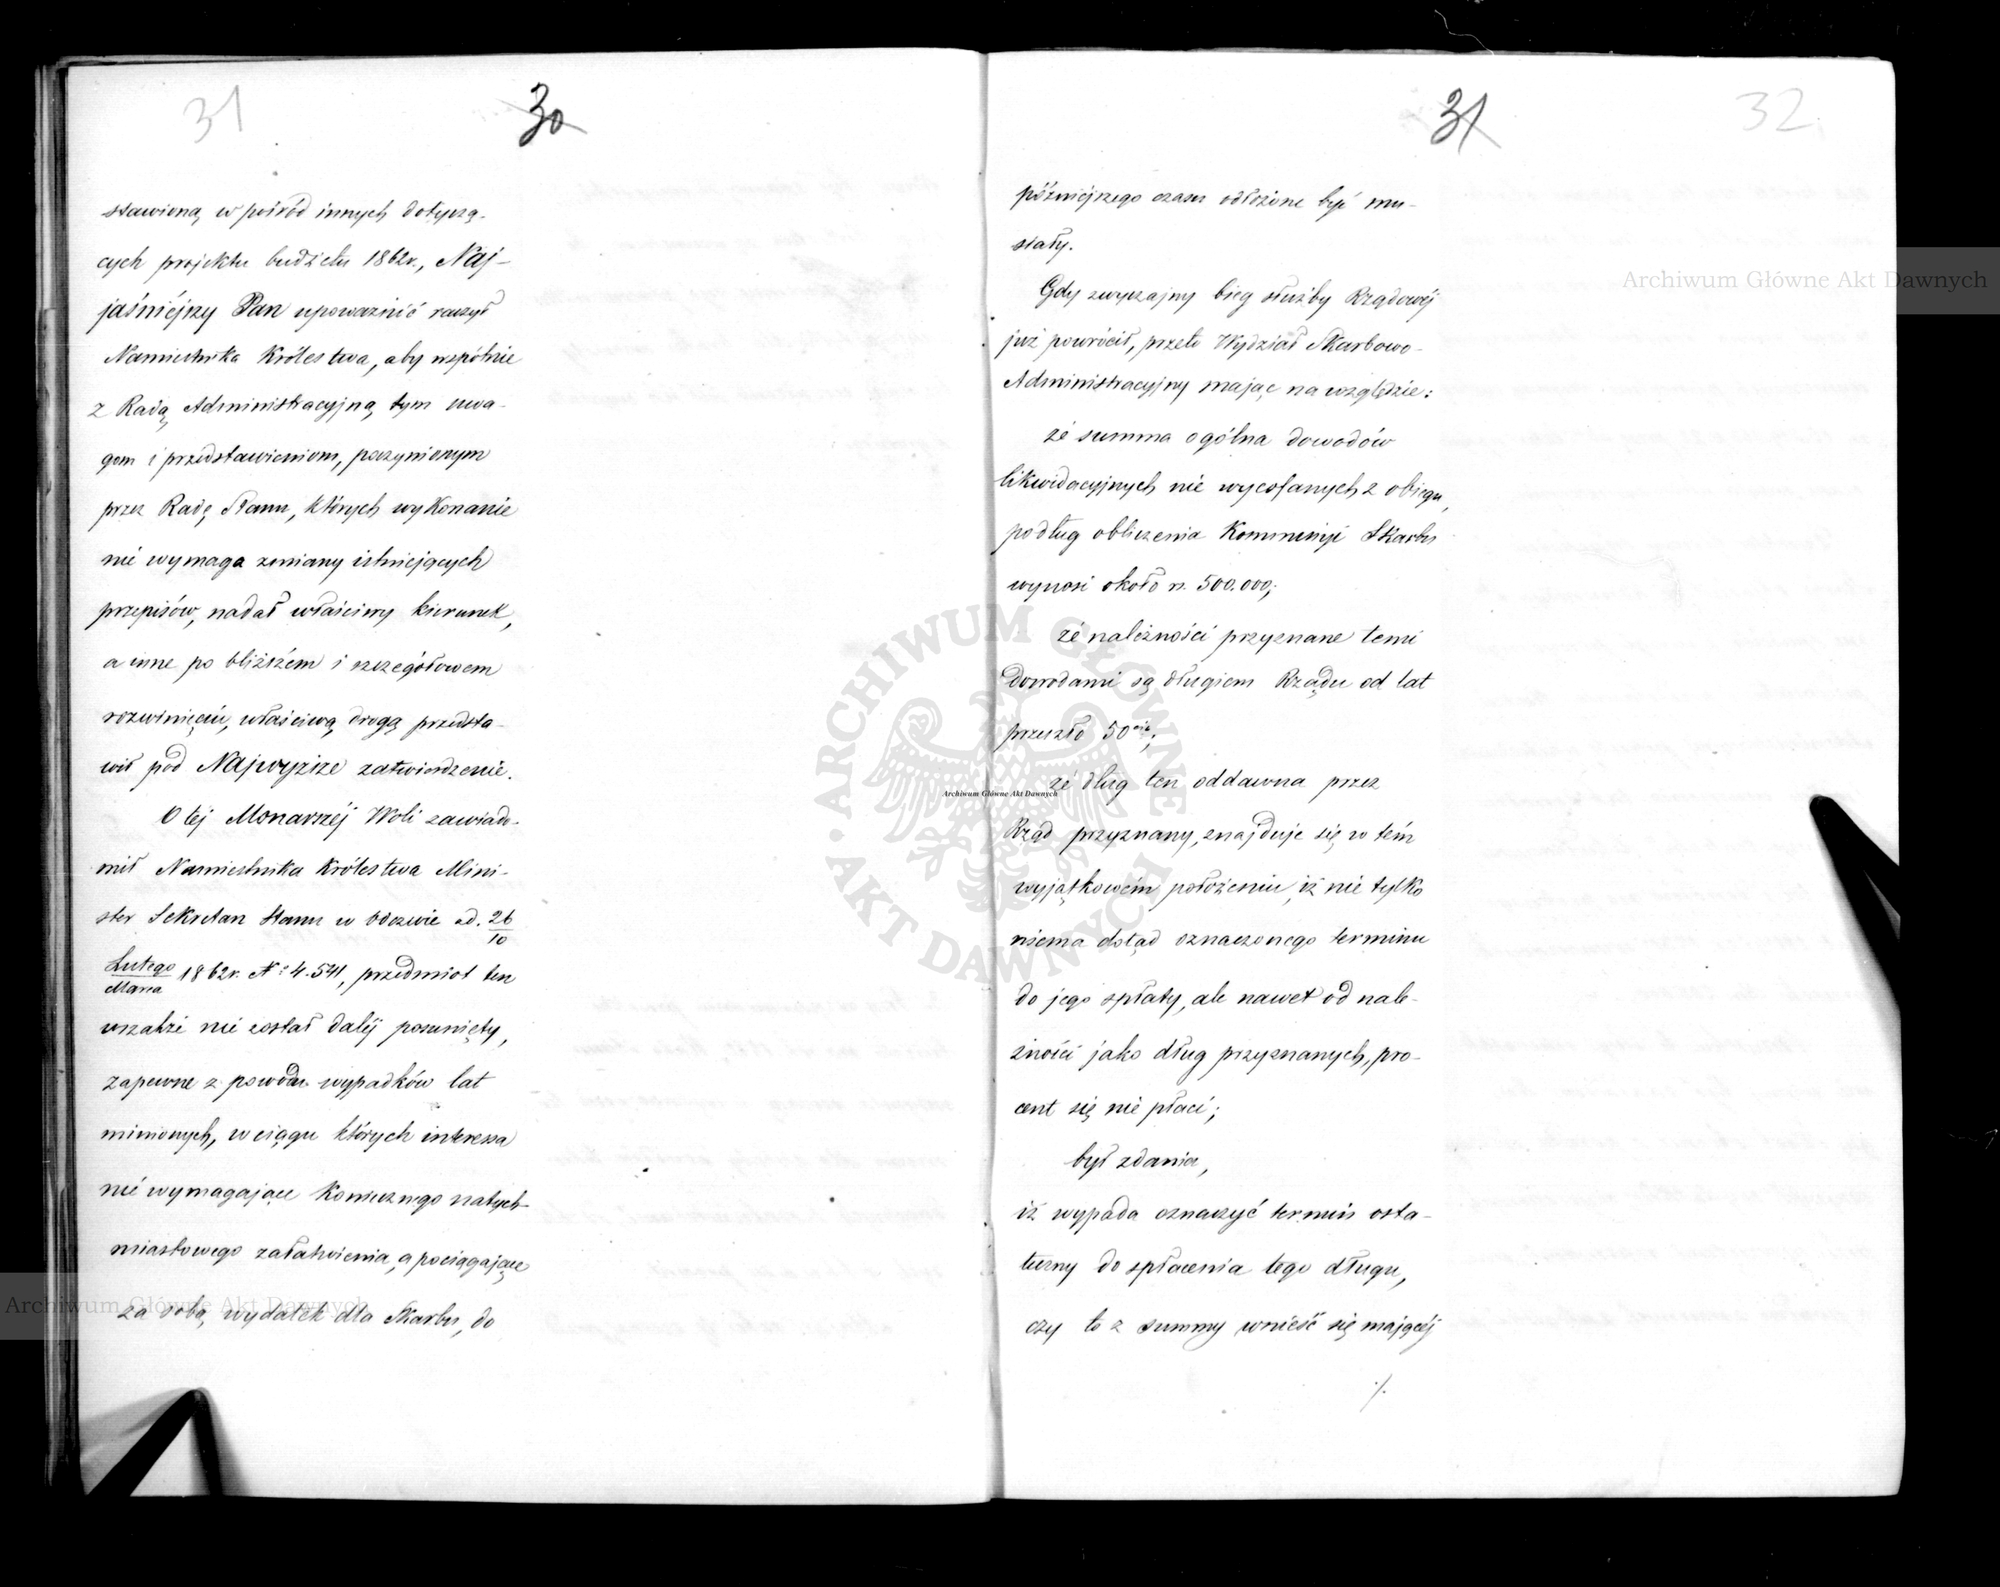 31
30
stawioną w pośród innych dotyczą-
cych projektu budżetu 1862r., Naj-
jaśniéjszy Pan upoważnić raczył
Namiestnika Królestwa, aby wspólnie
z Radą Administracyjną tym uwa-
gom i przedstawieniom, poczynionym
przez Radę Stanu, których wykonanie
nie wymaga zmiany istniejących
przepisów, nadał właściwy kierunek,
a inne po bliższém i szczegółowem
rozwinięciu, właściwą drogą przedsta-
wił pod Najwyższe zatwierdzenie.
O téj Monarszéj Woli zawiado-
mił Namiestnika Królestwa Mini-
ster Sekretarz Stanu w odezwie z d. 26/10
Lutego/Marca 1862r. Nº 4.541, przedmiot ten
wszakże nie został daléj posunięty,
zapewne z powodu wypadków lat
minionych, w ciągu których interessa
nie wymagające koniecznego natych-
miastowego załatwienia, a pociągające
za sobą wydatek dla Skarbu, do
31
32
późniejszego czasu odłożone być mu-
siały.
Gdy zwyczajny bieg służby Rządowéj
już powrócił, przeto Wydział Skarbowo-
Administracyjny mając na względzie:
że summa ogólna dowodów
likwidacyjnych nie wycofanych z obiegu,
podług obliczenia Kommissyi Skarbu
wynosi około rs. 500.000;
że należności przyznane temi
dowodami są długiem Rządu od lat
przeszło 50ciu;
że dług ten oddawna przez
Rząd przyznany, znajduje się w tém
wyjątkowém położeniu, iż nie tylko
niema dotąd oznaczonego terminu
do jego spłaty, ale nawet od nale-
żności jako dług przyznanych, pro-
cent się nie płaci;
był zdania,
iż wypada oznaczyć termin osta-
teczny do spłacenia tego długu,
czy to z summy wnieść się mającéj
./.
Archiwum Główne Akt Dawnych
Archiwum Główne Akt Dawnych
Archiwum Główne Akt Dawnych
ARCHIWUM GŁÓWNE AKT DAWNYCH